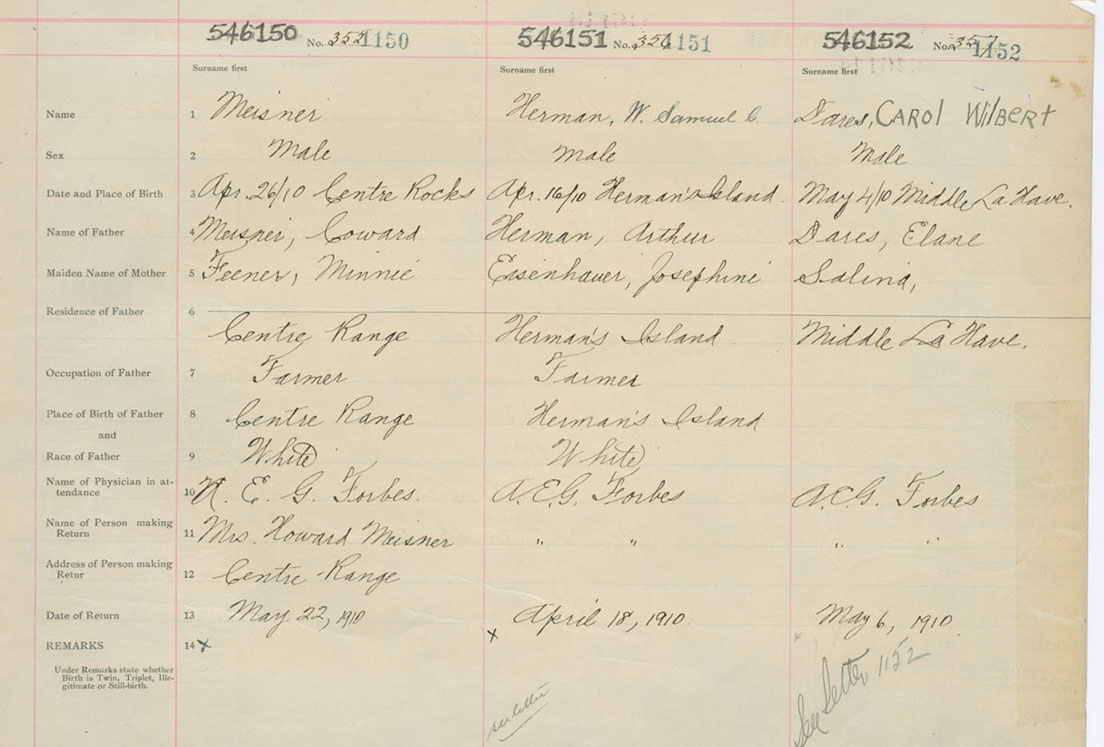 546150 No. 352 1150 546151 No. 356 1151 546152 No. 357 1152
Surname first Surname first Surname first
Name 1 Meisner Herman, W. Samuel C. Dares, CAROL WilBERT
Sex 2 Male Male Male
Date and Place of Birth 3 Apr. 26/10 Centre Rocks Apr. 16/10 Herman's Island. May 4/10 Middle La Have.
Name of Father 4 Meisner, Coward Herman, Arthur Dares, Elane
Maiden Name of Mother 5 Feener, Minnie Eisenhauer, Josephini Salina,
Residence of Father 6
Centre Range Herman's Island Middle La Have.
Occupation of Father 7 Farmer Farmer
Place of Birth of Father 8 Centre Range Herman's Island
and
Race of Father 9 White White
Name of Physician in at-
tendance 10 E. G. Forbes. A.E.G. Forbes A.C.G. Forbes
Name of Person making
Return 11 Mrs. Howard Meisner " " " "
Address of Person making
Retur 12 Centre-Range
Date of Return 13 May 22, 1910 April 18, 1910. May 6, 1910
REMARKS 14 x x x
Under Remarks state whether
Birth is Twin, Triplet, Ille-
gitimate or Still-birth.
see letter
See Letter 1152